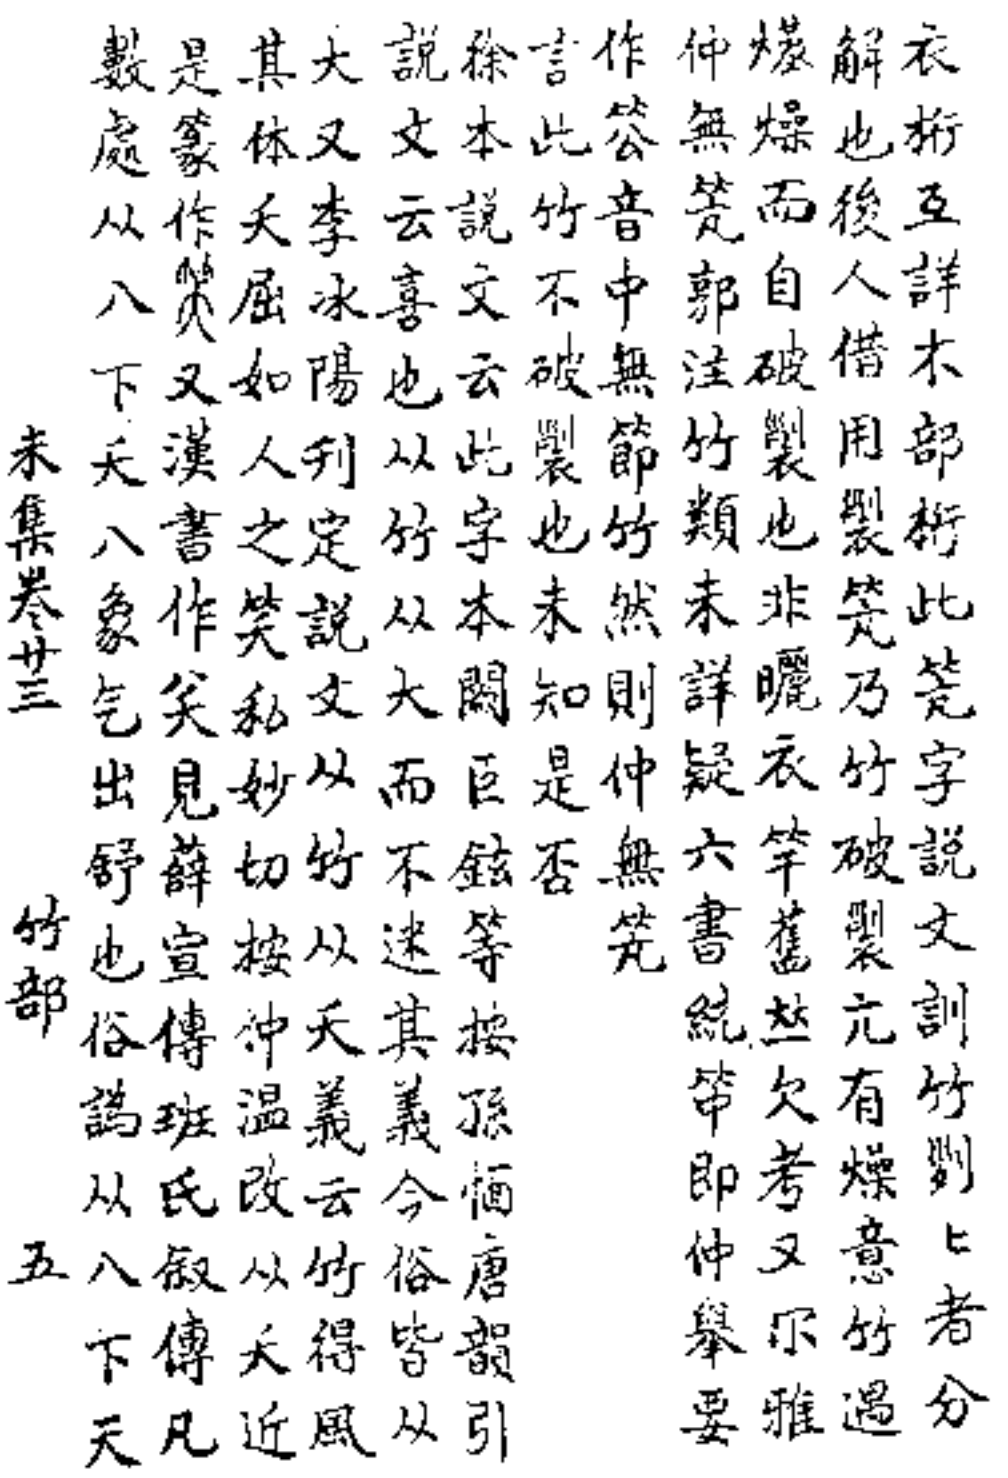 衣桁互詳木部桁此笐字説文訓竹列〻者分
解也後人借用製笐乃竹破製亢有燥意竹過
燥而自破製也非曬衣竿舊欠考又尔雅
仲無笐郭注竹類未詳疑六書統笧即仲舉要
作筨音中無節竹然則仲無笐
言此竹不破製也未知是否
徐本説文云此字本闕臣鉉等按孫愐唐韻引
説文云喜也从竹从犬而不述其義今俗皆从
犬又李氷陽刋定説文从竹从夭義云竹得風
其体夭屈如人之笑私妙切按仲温改从夭近
是篆作又漢書作关見薛宣傳班氏叙傳凡
數處从八下夭八象气出舒也俗譌从八下天
未集卷廿三 竹部 五